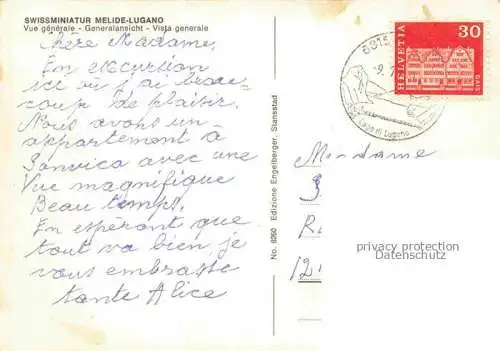 SWISSMINIATUR MELIDE-LUGANO
Vue générale - Generalansicht - Vista generale
Chère Madame,
En excurtion
ici où j'ai beau-
coup de plaisir.
Nous avons un
appartement à
Sonvico avec une
Vue magnifique
Beau temps.
En espérant que
tout va bien je
vous embrasse
tante Alice
No. 6260 Edizione Engelberger, Stansstad
HELVETIA
30
6815
Lago di Lugano
Madame
privacy protection
Datenschutz
12